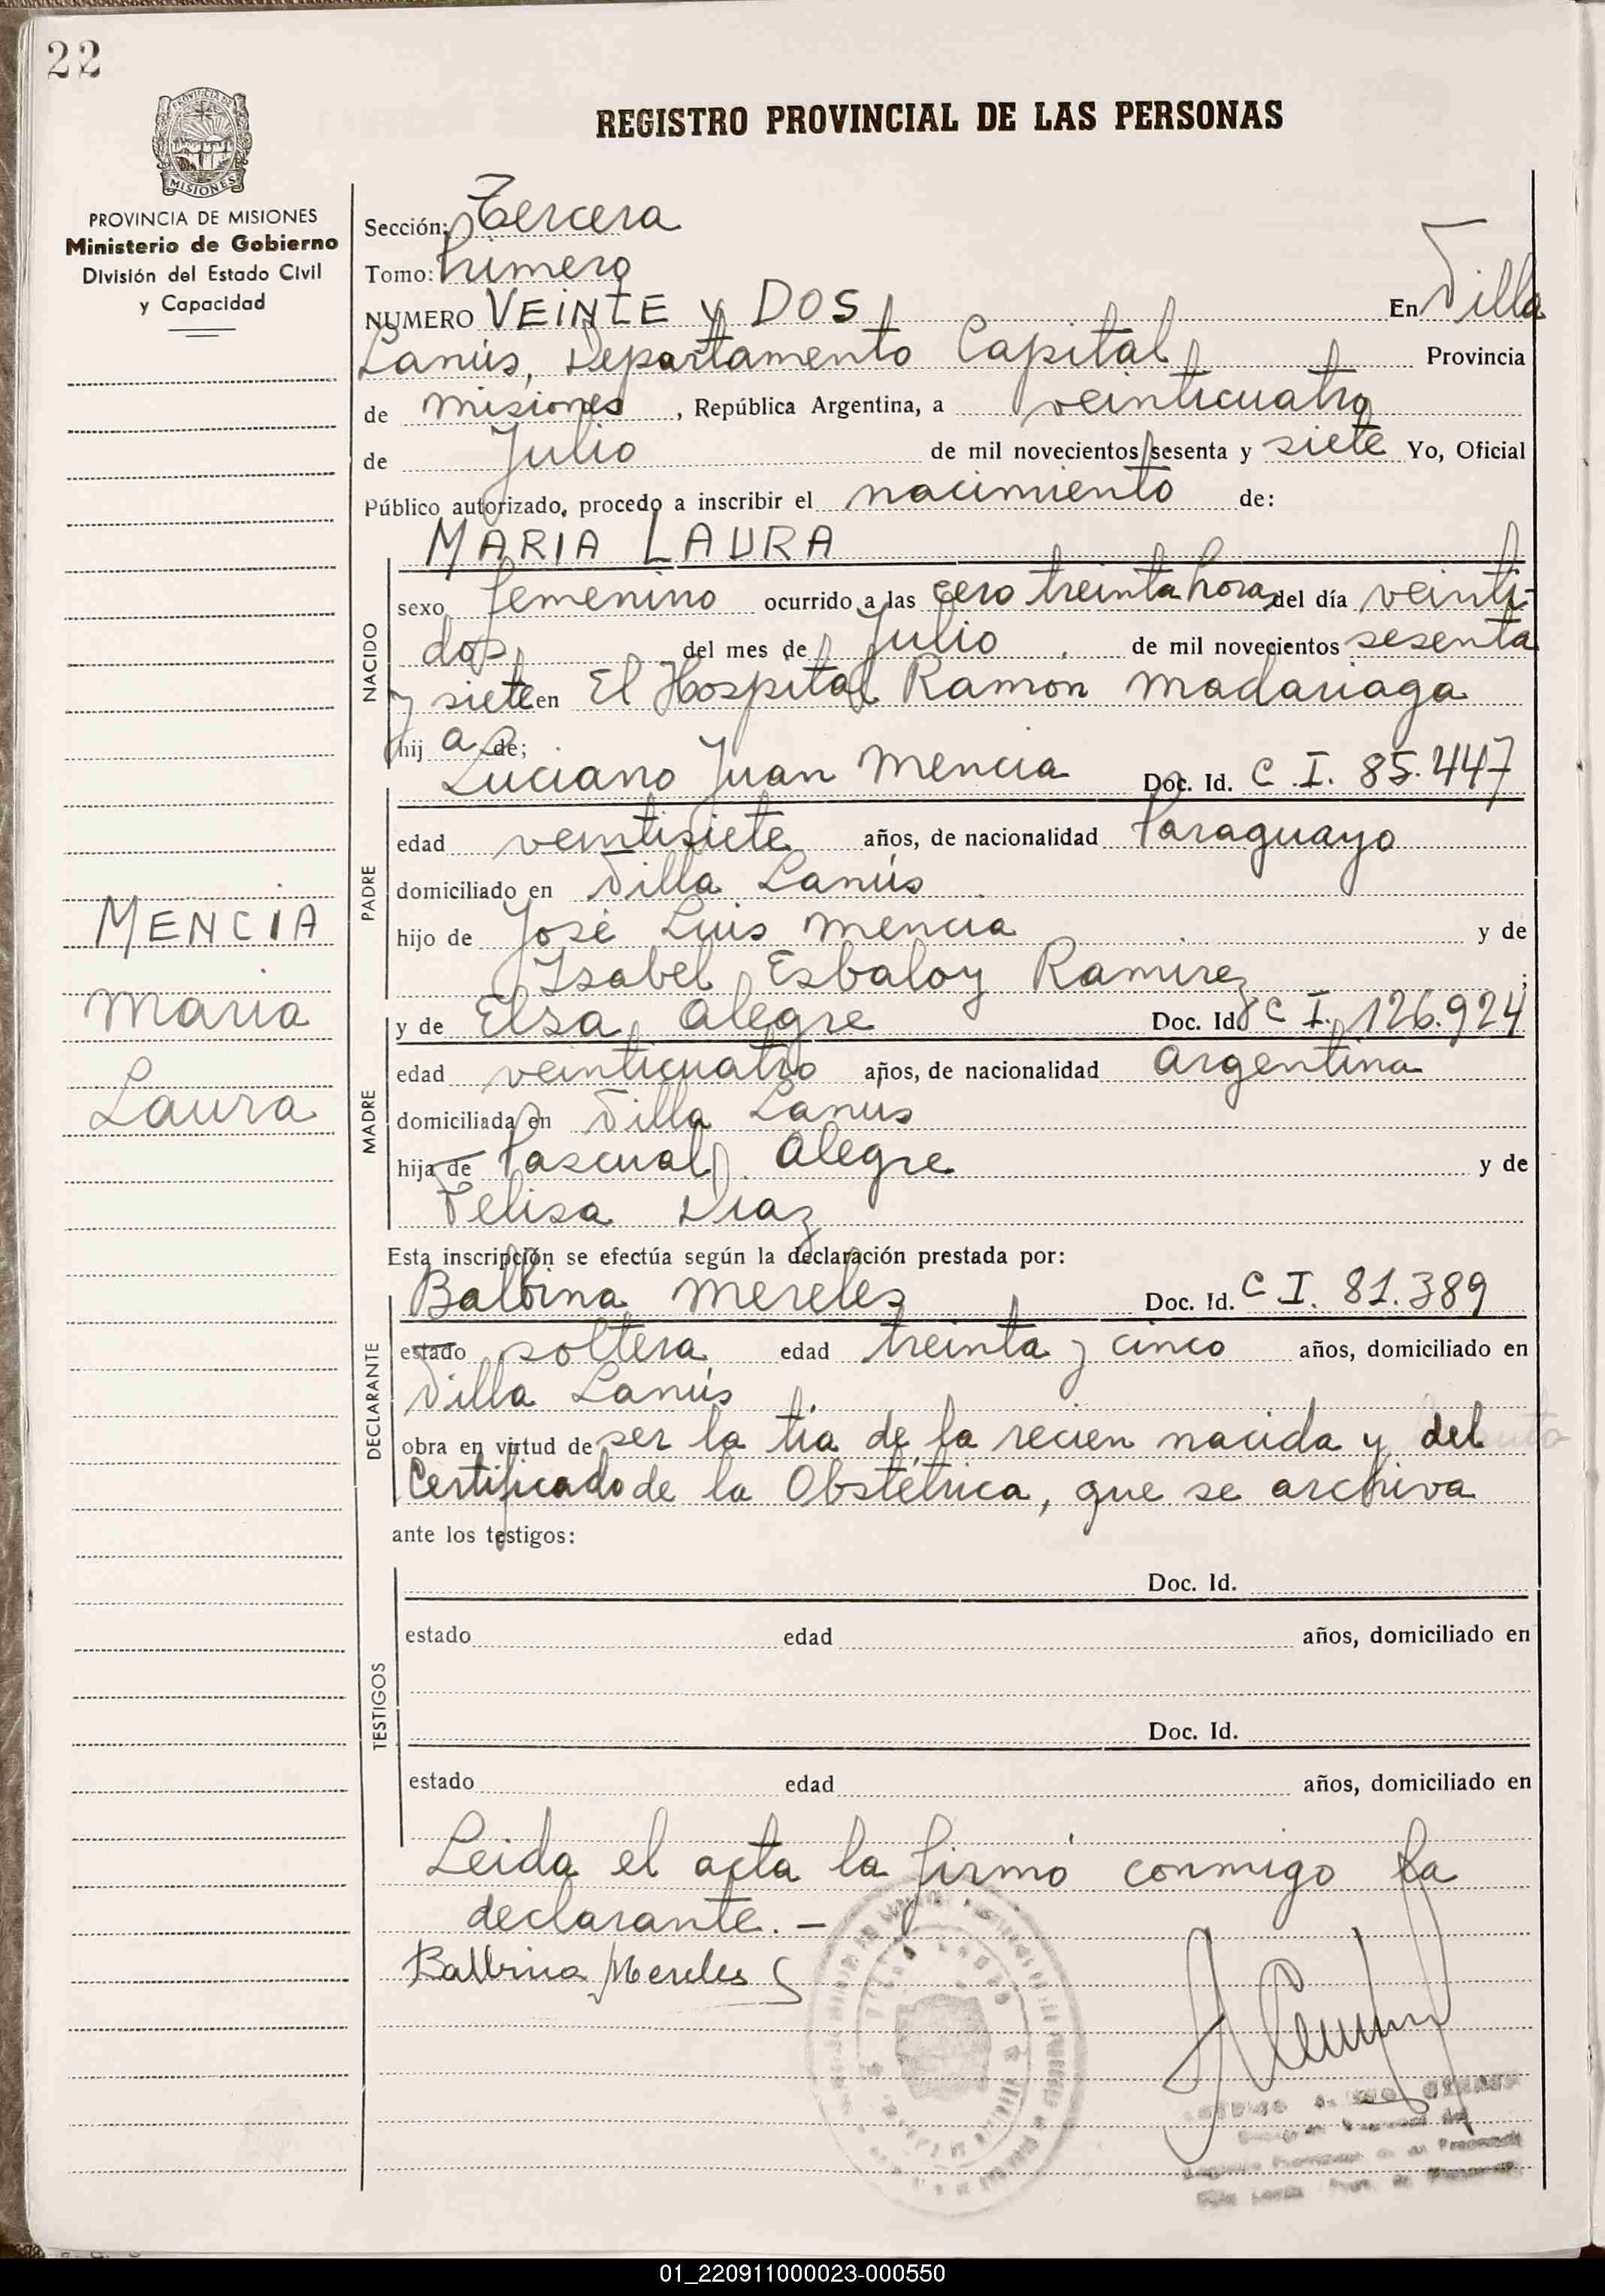 22
REGISTRO PROVINCIAL DE LAS PERSONAS
PROVINCIA DE MISIONES
MISIONES
PROVINCIA DE MISIONES
Ministerio de Gobierno
División del Estado Civil
y Capacidad
Sección: Tercera
Tomo: Primero
NUMERO VEINTE y DOS En Villa
Lanús, Departamento Capital Provincia
de Misiones, República Argentina, a veinticuatro
de Julio de mil novecientos sesenta y siete Yo, Oficial
Público autorizado, procedo a inscribir el nacimiento de:
MARIA LAURA
NACIDO
sexo femenino ocurrido a las cero treinta horas del día veinti-
dos del mes de Julio de mil novecientos sesenta
y siete en El Hospital Ramon Madariaga
hij a de;
Luciano Juan Mencia Doc. Id. C I. 85.447
PADRE
edad veintisiete años, de nacionalidad Paraguayo
domiciliado en Villa Lanús
hijo de José Luis Mencia y de
Isabel Esbaloy Ramirez ;
y de Elsa Alegre Doc. Id. C I. 126.924
MADRE
edad veinticuatro años, de nacionalidad Argentina
domiciliada en Villa Lanus
hija de Pascual Alegre y de
Felisa Diaz
MENCIA
Maria
Laura
Esta inscripción se efectúa según la declaración prestada por:
Balbina Mereles Doc. Id. C I. 81.389
DECLARANTE
estado soltera edad treinta y cinco años, domiciliado en
Villa Lanús
obra en virtud de ser la tia de la recien nacida y del
Certificado de la Obstétrica, que se archiva
ante los testigos:
TESTIGOS
Doc. Id.
estado edad años, domiciliado en
Doc. Id.
estado edad años, domiciliado en
Leida el acta la firmó conmigo la
declarante. —
Balbina Mereles
01_220911000023-000550